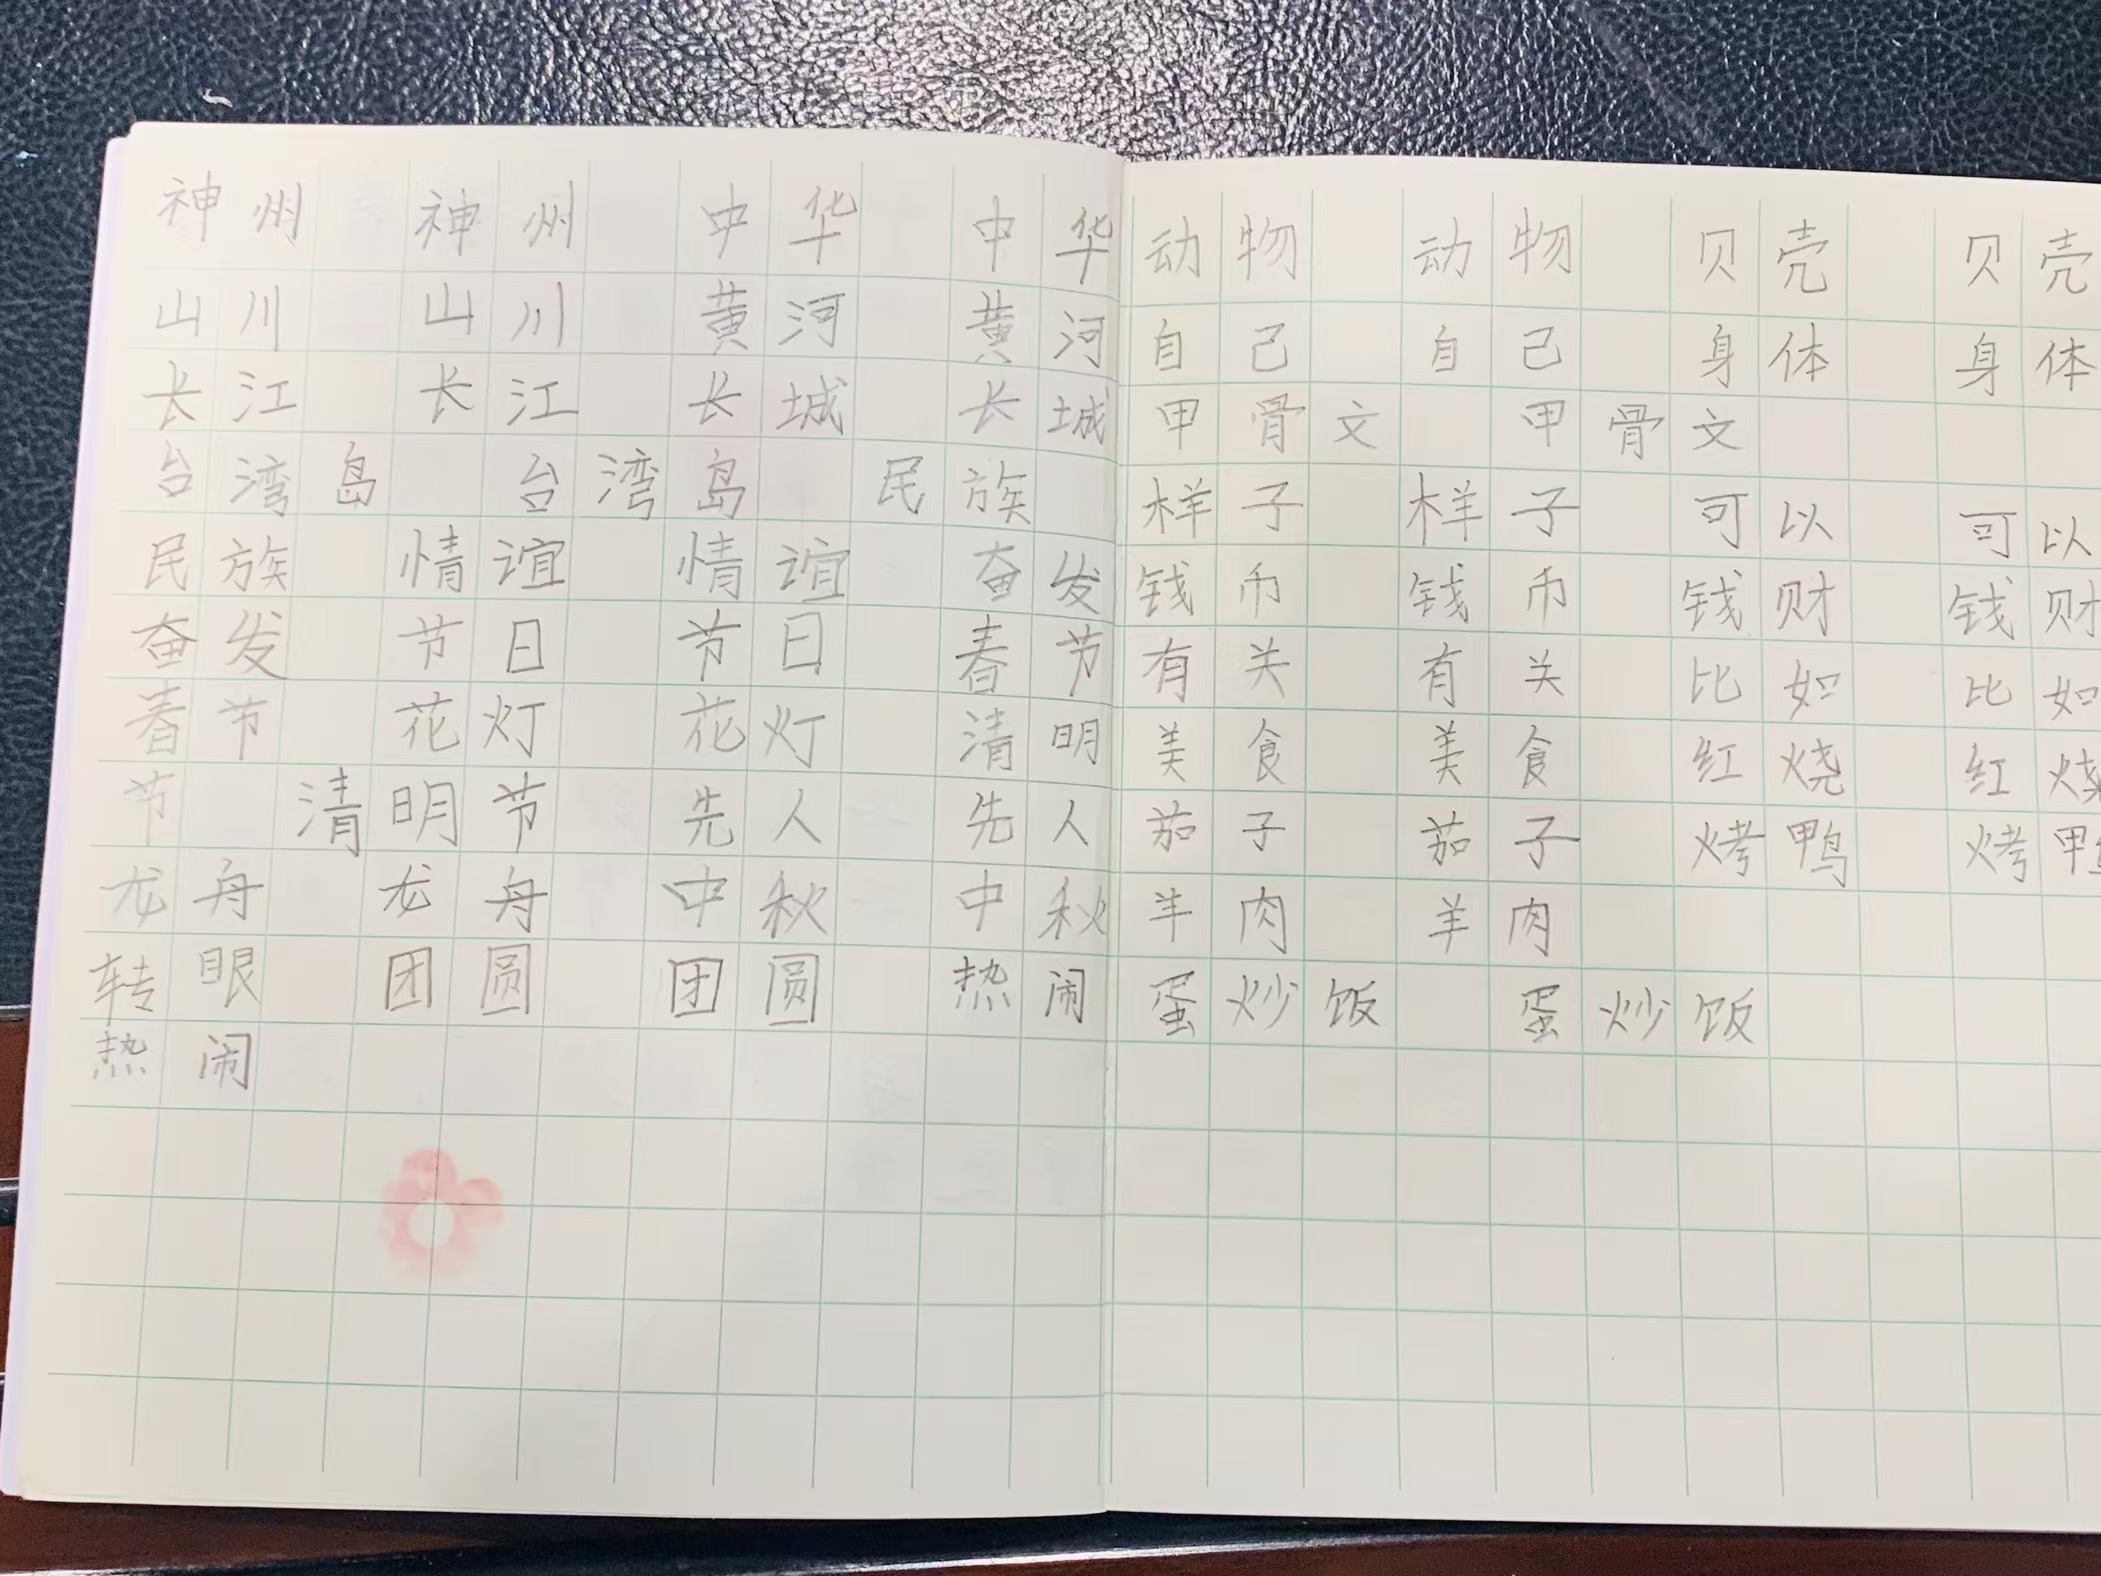 神州 神州 中华 中华
山川 山川 黄河 黄河
长江 长江 长城 长城
台湾岛 台湾岛 民族
民族 情谊 情谊 奋发
奋发 节日 节日 春节
春节 花灯 花灯 清明
节 清明节 先人 先人
龙舟 龙舟 中秋 中秋
转眼 团圆 团圆 热闹
热闹
动物 动物 贝壳 贝壳
自己 自己 身体 身体
甲骨文 甲骨文
样子 样子 可以 可以
钱币 钱币 钱财 钱财
有关 有关 比如 比如
美食 美食 红烧 红烧
茄子 茄子 烤鸭 烤鸭
羊肉 羊肉
蛋炒饭 蛋炒饭